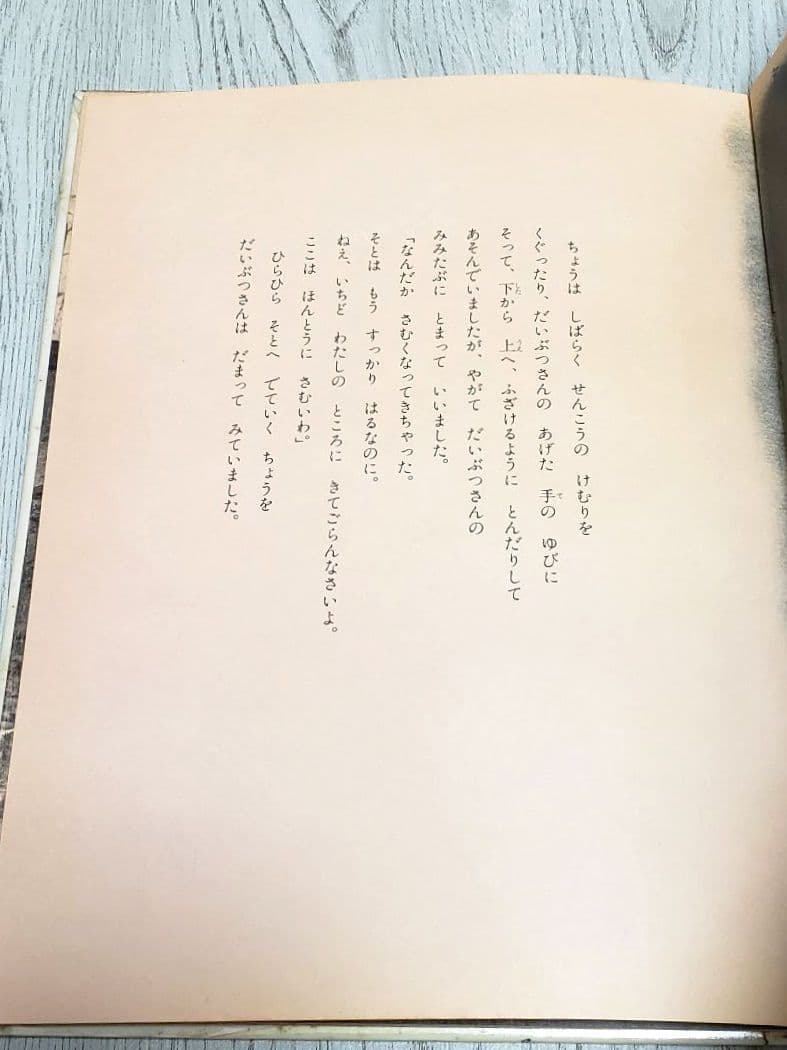 ちょうは　しばらく　せんこうの　けむりを
くぐったり、だいぶつさんの　あげた　手の　ゆびに
そって、下から　上へ、ふざけるように　とんだりして
あそんでいましたが、やがて　だいぶつさんの
みみたぶに　とまって　いいました。
「なんだか　さむくなってきちゃった。
そとは　もう　すっかり　はるなのに。
ねえ、いちど　わたしの　ところに　きてごらんなさいよ。
ここは　ほんとうに　さむいわ。」
ひらひら　そとへ　でていく　ちょうを
だいぶつさんは　だまって　みていました。